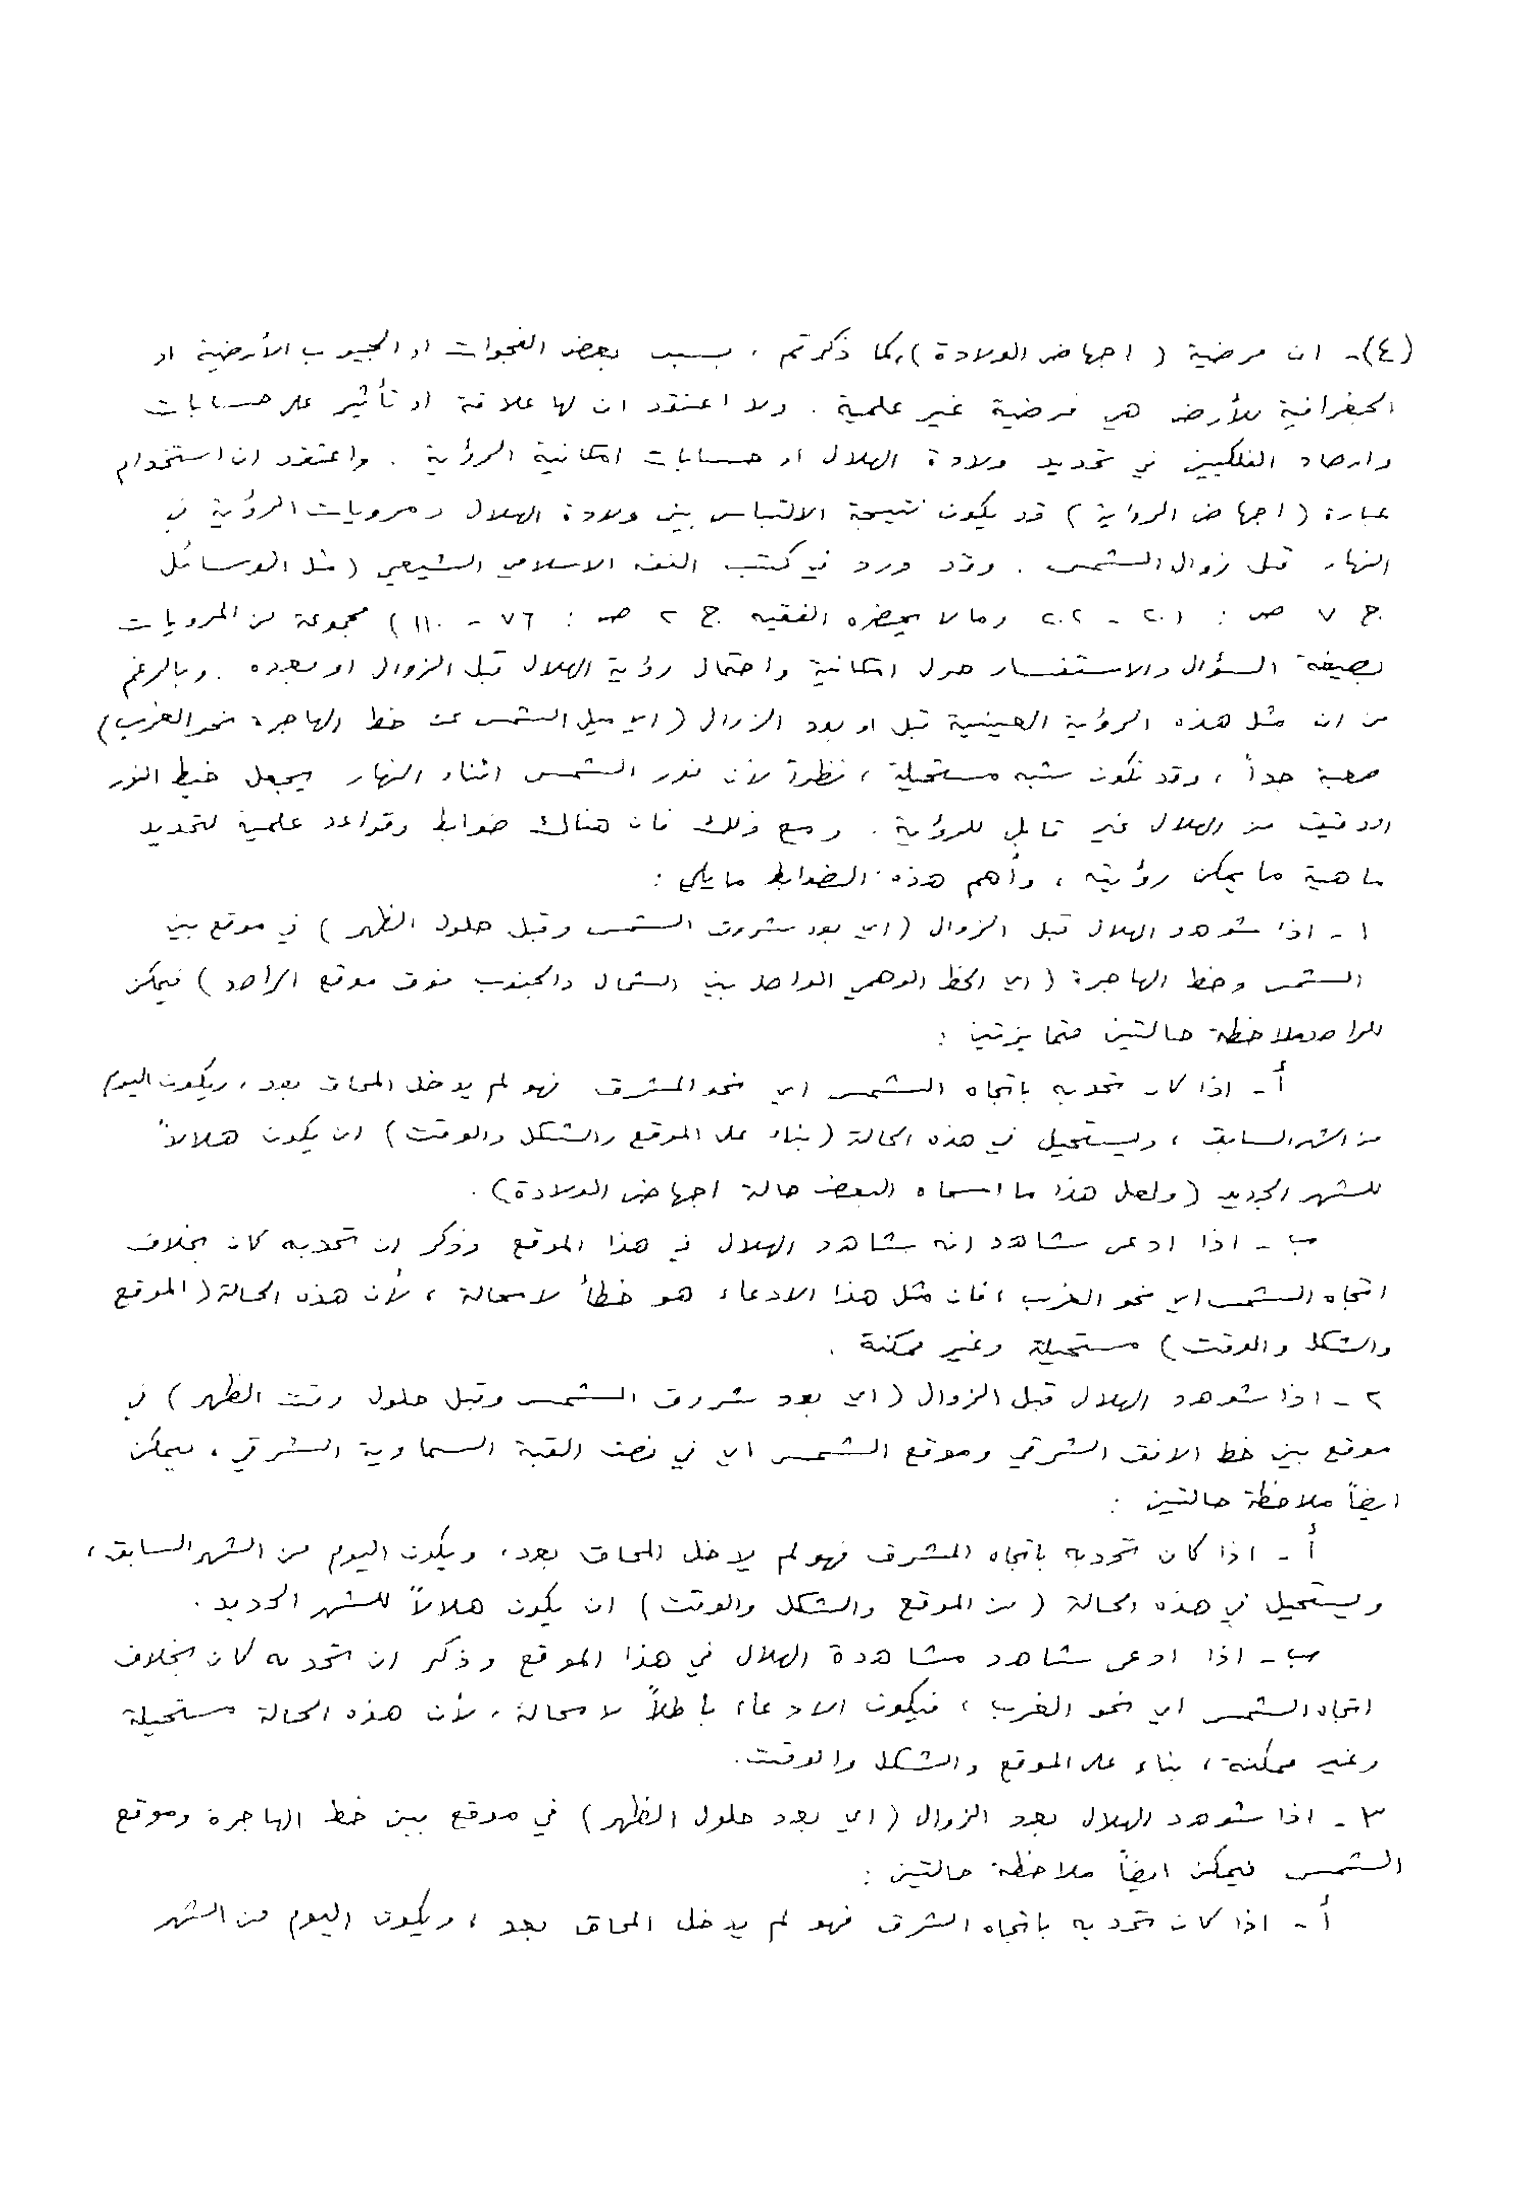 (٤)ـ ان فرضية ( اجهاض الولادة )، كما ذكرتم ، بسبب بعض الفجوات او الجيوب الأرضية او
الجغرافية للأرض هي فرضية غير علمية . ولا اعتقد ان لها علاقة او تأثير على حسابات
وارصاد الفلكيين في تحديد ولادة الهلال او حسابات امكانية الرؤية . واعتقد ان استخدام
عبارة ( اجهاض الرؤية ) قد يكون نتيجة الالتباس بين ولادة الهلال ومرويات الرؤية في
النهار قبل زوال الشمس . وقد ورد في كتب الفقه الاسلامي الشيعي ( مثل الوسائل
ج ٧ ص : ٢٠١ ـ ٢٠٢ وما لا يحضره الفقيه ج ٢ ص : ٧٦ ـ ١١٠ ) مجموعة من المرويات
بصيغة السؤال والاستفسار حول امكانية واحتمال رؤية الهلال قبل الزوال او بعده . وبالرغم
من ان مثل هذه الرؤية العينية قبل او بعد الزوال ( اي ميل الشمس عن خط الهاجرة نحو الغرب )
صعبة جداً ، وقد تكون شبه مستحيلة ، نظرة لأن نور الشمس اثناء النهار يجعل خيط النور
الدقيق من الهلال غير قابل للرؤية . ومع ذلك فان هناك ضوابط وقواعد علمية لتحديد
ماهية ما يمكن رؤيته ، وأهم هذه الضوابط ما يلي :
١ ـ اذا شوهد الهلال قبل الزوال ( اي بعد شروق الشمس وقبل حلول الظهر ) في موقع بين
الشمس وخط الهاجرة ( اي الخط الوهمي الواصل بين الشمال والجنوب فوق موقع الراصد ) فيمكن
للراصد ملاحظة حالتين متمايزتين :
أ ـ اذا كان تحدبه باتجاه الشمس اي نحو المشرق فهو لم يدخل المحاق بعد ، ويكون اليوم
من الشهر السابق ، ويستحيل في هذه الحالة ( بناء على الموقع والشكل والوقت ) ان يكون هلالاً
للشهر الجديد ( ولعل هذا ما اسماه البعض حالة اجهاض الولادة ) .
ب ـ اذا ادعى شاهد انه شاهد الهلال في هذا الموقع وذكر ان تحدبه كان بخلاف
اتجاه الشمس اي نحو الغرب ، فان مثل هذا الادعاء هو خطأ لا محالة ، لأن هذه الحالة ( الموقع
والشكل والوقت ) مستحيلة وغير ممكنة .
٢ ـ اذا شوهد الهلال قبل الزوال ( اي بعد شروق الشمس وقبل حلول وقت الظهر ) في
موقع بين خط الافق الشرقي وموقع الشمس اي في نصف القبة السماوية الشرقي ، فيمكن
ايضاً ملاحظة حالتين :
أ ـ اذا كان تحدبه باتجاه المشرق فهو لم يدخل المحاق بعد ، ويكون اليوم من الشهر السابق ،
ويستحيل في هذه الحالة ( من الموقع والشكل والوقت ) ان يكون هلالاً للشهر الجديد .
ب ـ اذا ادعى شاهد مشاهدة الهلال في هذا الموقع وذكر ان تحدبه كان بخلاف
اتجاه الشمس اي نحو الغرب ، فيكون الادعاء باطلاً لا محالة ، لأن هذه الحالة مستحيلة
وغير ممكنة ، بناء على الموقع والشكل والوقت .
٣ ـ اذا شوهد الهلال بعد الزوال ( اي بعد حلول الظهر ) في موقع بين خط الهاجرة وموقع
الشمس فيمكن ايضاً ملاحظة حالتين :
أ ـ اذا كان تحدبه باتجاه الشرق فهو لم يدخل المحاق بعد ، ويكون اليوم من الشهر